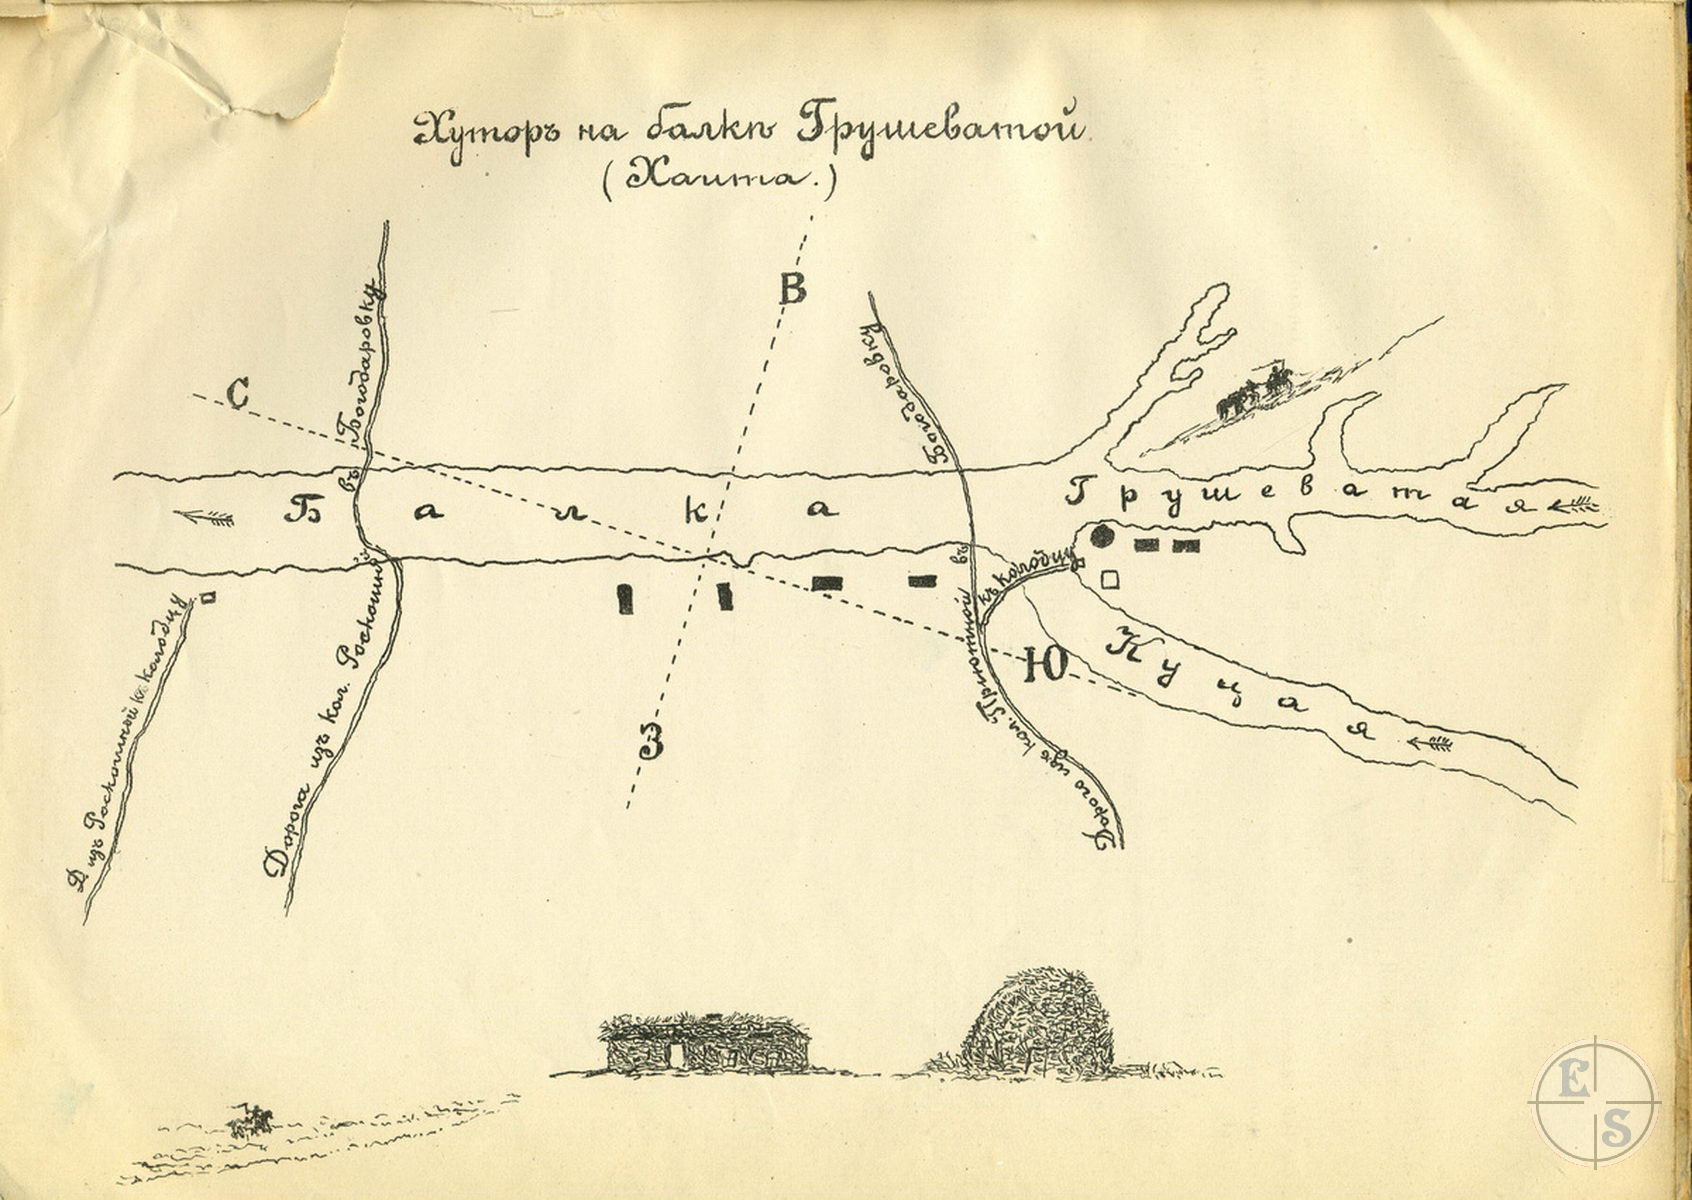 Хуторъ на балкѣ Грушеватой.
(Хаита.)
В
С
въ Богодаровку
въ Богодаровку
Балка Грушеватая
къ колодцу
Куцая
Ю
З
Д. изъ Роскошной къ колодцу
Дорога изъ кол. Роскошной
Дорога изъ кол. Пріютной
E
S